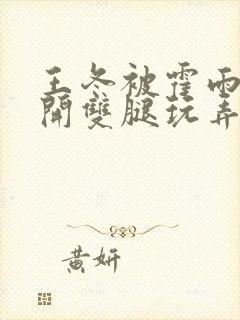 王冬被霍雨
開雙腿玩弄
黄妍